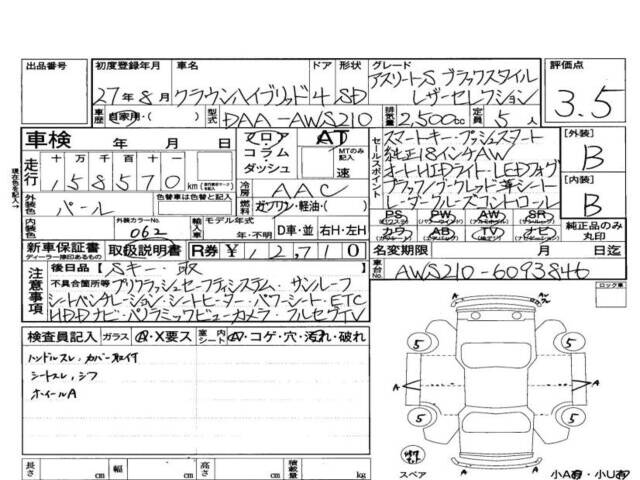 出品番号 初度登録年月 車名 ドア 形状 グレード 評価点
27年8月 クラウンハイブリッド 4 SD アスリートS ブラックスタイル レザーセレクション 3.5
車歴 自家用・( ) 型式 DAA-AWS210 排気量 2,500cc 定員 5人
車検 年 月 日 フロア コラム ダッシュ AT MTのみ記入 速
セールスポイント スマートキー・プッシュスタート
純正18インチAW
オートHIDライト・LEDフォグ
ブラック/ワークレッド革シート
レーダークルーズコントロール
[外装] B
[内装] B
現在色を記入→
走行 十 万 千 百 十
158570 km
冷房 AAC
外装色 パール 色替車は色替と記入 燃料 ガソリン・軽油・( )
PS PW AW SR
カワ AB TV ナビ
純正品のみ丸印
内装色 外装カラーNo. 062 輸入車 モデル年式 年・不明 D車・並 右H・左H
新車保証書 ディーラー捺印あるもの 取扱説明書 R券 ¥12,710 名変期限 月 日迄
注意事項 後日品【Sキー・取 】
車台No. AWS210-6093846
不具合箇所等 プリクラッシュセーフティシステム・サンルーフ
シートベンチレーション・シートヒーター・パワーシート・ETC
HDDナビ・パノラミックビューカメラ・フルセグTV
ロック車
検査員記入 ガラス A・X要ス 室内シート A・コゲ・穴・汚れ・破れ
ハンドルスレ、カバー取付
シートスレ、シワ
ホイールA
A
5 5
A A
5 5
A
スペア 小A有・小U有
長さ cm 幅 cm 高さ cm 積載量 kg